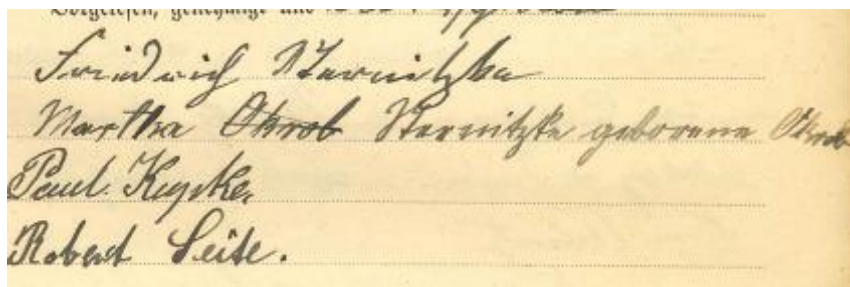 Vorgelesen, genehmigt und
Friedrich Sternitzke
Martha Okrob Sternitzke geborene Okrob
Paul Kupke.
Robert Seite.